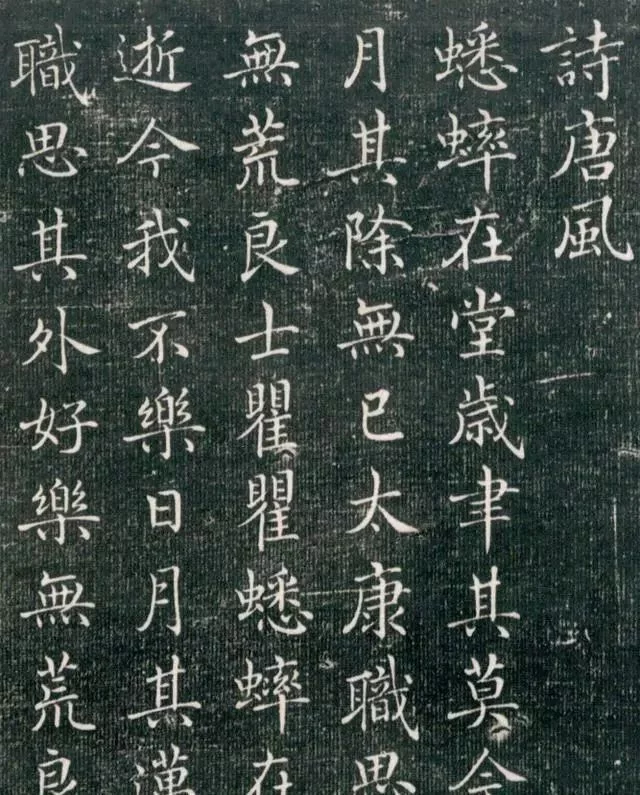 詩唐風
蟋蟀在堂歳聿其莫今
月其除無已太康職思
無荒良士瞿瞿蟋蟀在
逝今我不樂日月其邁
職思其外好樂無荒良